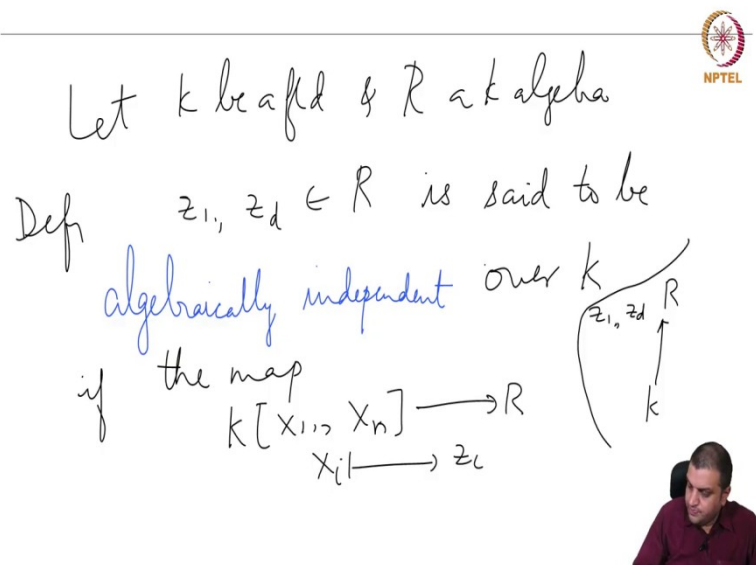 NPTEL
Let k be a fld & R a k algebra
Defn z₁,, z_d ∈ R is said to be
algebraically independent over k
if the map
k[X₁,,, X_n] ⟶ R
X_i ⟼ z_i
z₁,, z_d R
↑
k